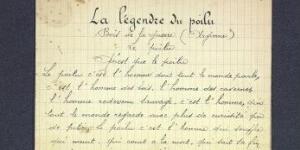 La légendre du poilu
Récit de la guerre (
Le poilu
Qu'est que le poilu
Le poilu c'est l'homme dont tout le monde parle,
c'est l'homme des bois, l'homme des cavernes
l'homme redevenu sauvage, c'est l'homme, que
tout le monde regarde avec plus de curiosité que
de le poilu c'est l'homme qui souffre
qui meurt, qui court à la mort, qui sait se